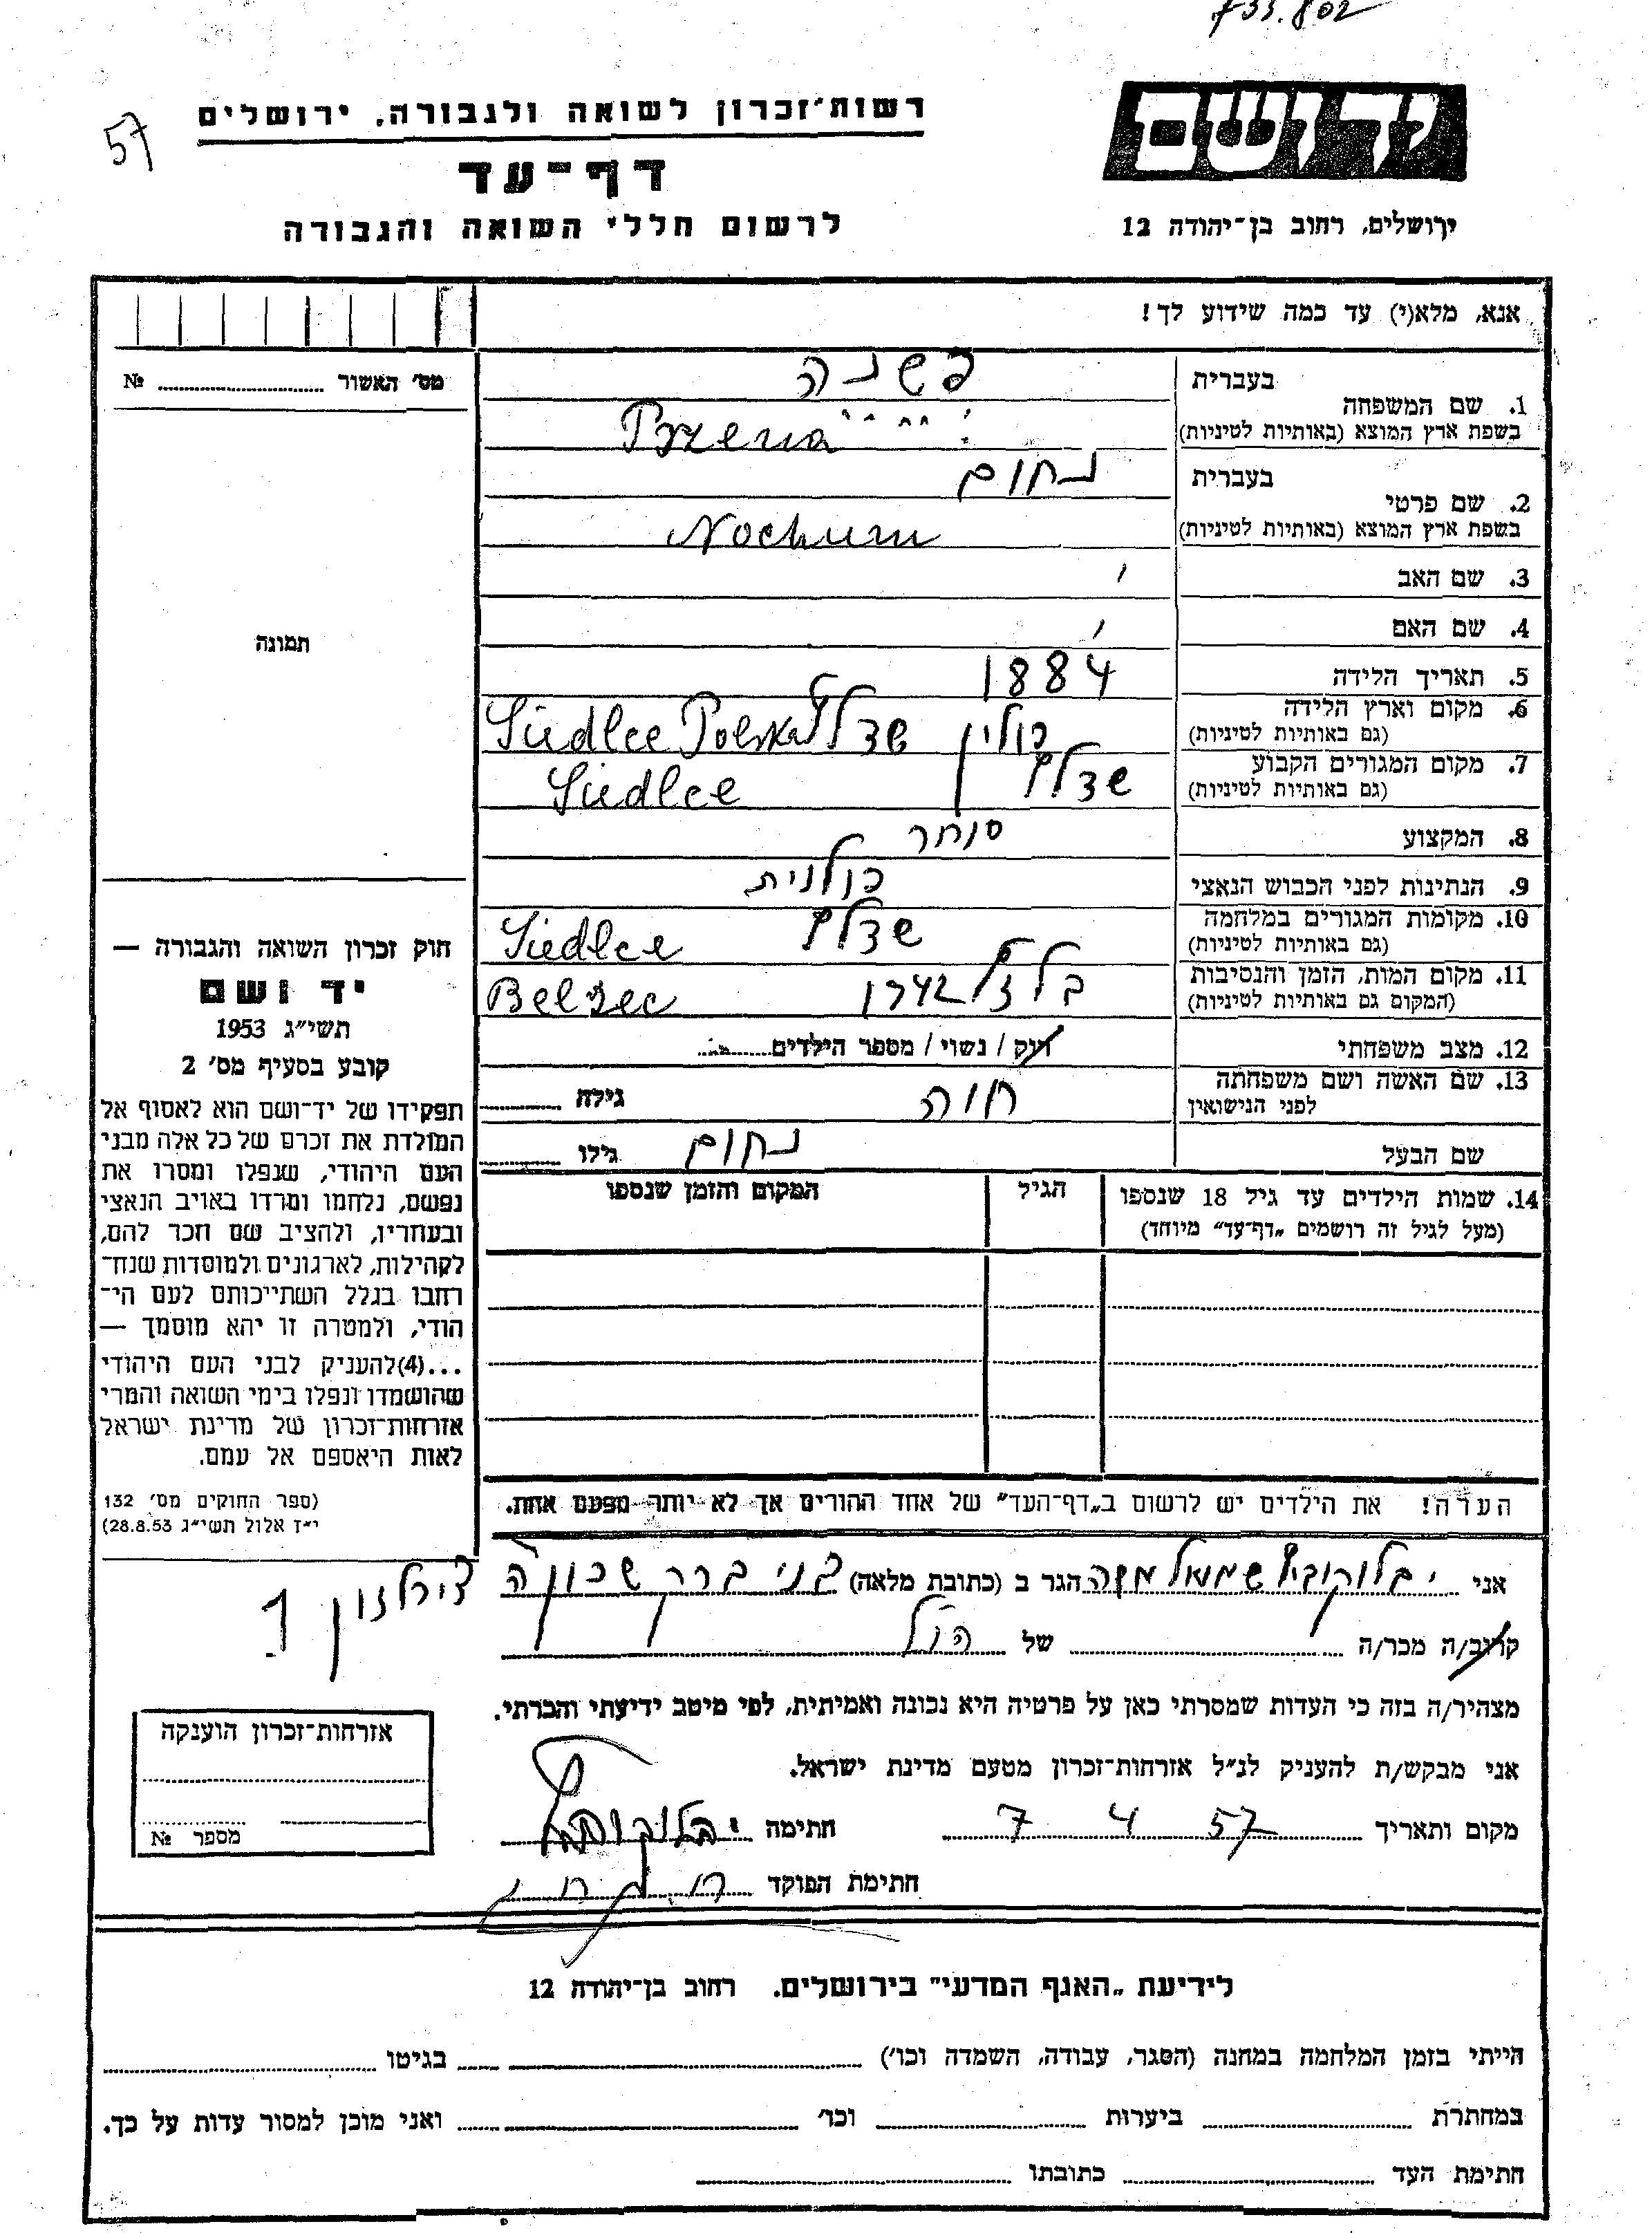 733.802
57
רשות־זכרון לשואה ולגבורה, ירושלים
דף־עד
לרשום חללי השואה והגבורה
יד ושם
ירושלים, רחוב בן־יהודה 12
אנא, מלא(י) עד כמה שידוע לך!
מס׳ האשור № ........
תמונה
1. שם המשפחה
בעברית פשנה
בשפת ארץ המוצא (באותיות לטיניות) Przena
2. שם פרטי
בעברית נחום
בשפת ארץ המוצא (באותיות לטיניות) Nochum
3. שם האב
4. שם האם
5. תאריך הלידה 1884
6. מקום וארץ הלידה
(גם באותיות לטיניות) פולין שדלץ Siedlce Polska
7. מקום המגורים הקבוע
(גם באותיות לטיניות) שדלץ Siedlce
8. המקצוע סוחר
9. הנתינות לפני הכבוש הנאצי פולנית
10. מקומות המגורים במלחמה
(גם באותיות לטיניות) שדלץ Siedlce
11. מקום המות, הזמן והנסיבות
(המקום גם באותיות לטיניות) בלזץ 1942 Belzec
12. מצב משפחתי רוק / נשוי / מספר הילדים........
13. שם האשה ושם משפחתה
לפני הנישואין חוה גילה ........
שם הבעל נחום גילו ........
14. שמות הילדים עד גיל 18 שנספו
(מעל לגיל זה רושמים „דף־עד״ מיוחד)
הגיל
המקום והזמן שנספו
הערה! את הילדים יש לרשום ב„דף־העד״ של אחד ההורים אך לא יותר מפעם אחת.
חוק זכרון השואה והגבורה —
יד ושם
תשי״ג 1953
קובע בסעיף מס׳ 2
תפקידו של יד־ושם הוא לאסוף אל
המולדת את זכרם של כל אלה מבני
העם היהודי, שנפלו ומסרו את
נפשם, נלחמו ומרדו באויב הנאצי
ובעוזריו, ולהציב שם וזכר להם,
לקהילות, לארגונים ולמוסדות שנח־
רבו בגלל השתייכותם לעם הי־
הודי, ולמטרה זו יהא מוסמך —
...(4)להעניק לבני העם היהודי
שהושמדו ונפלו בימי השואה והמרי
אזרחות־זכרון של מדינת ישראל
לאות היאספם אל עמם.
(ספר החוקים מס׳ 132
י״ז אלול תשי״ג 28.8.53)
אני יבלוקוביץ הגר ב (כתובת מלאה) בני ברק שכונה
קרוב/ה מכר/ה ........ של הנ״ל
מצהיר/ה בזה כי העדות שמסרתי כאן על פרטיה היא נכונה ואמיתית, לפי מיטב ידיעתי והכרתי.
אני מבקש/ת להעניק לנ״ל אזרחות־זכרון מטעם מדינת ישראל.
מקום ותאריך 7 4 57 חתימה יבלוקוביץ
חתימת הפוקד
אזרחות־זכרון הוענקה
מספר №
לידיעת „האגף המדעי״ בירושלים. רחוב בן־יהודה 12
הייתי בזמן המלחמה במחנה (הסגר, עבודה, השמדה וכו׳) ........ בגיטו ........
במחתרת ........ ביערות ........ וכו׳ ........ ואני מוכן למסור עדות על כך.
חתימת העד ........ כתובתו ........